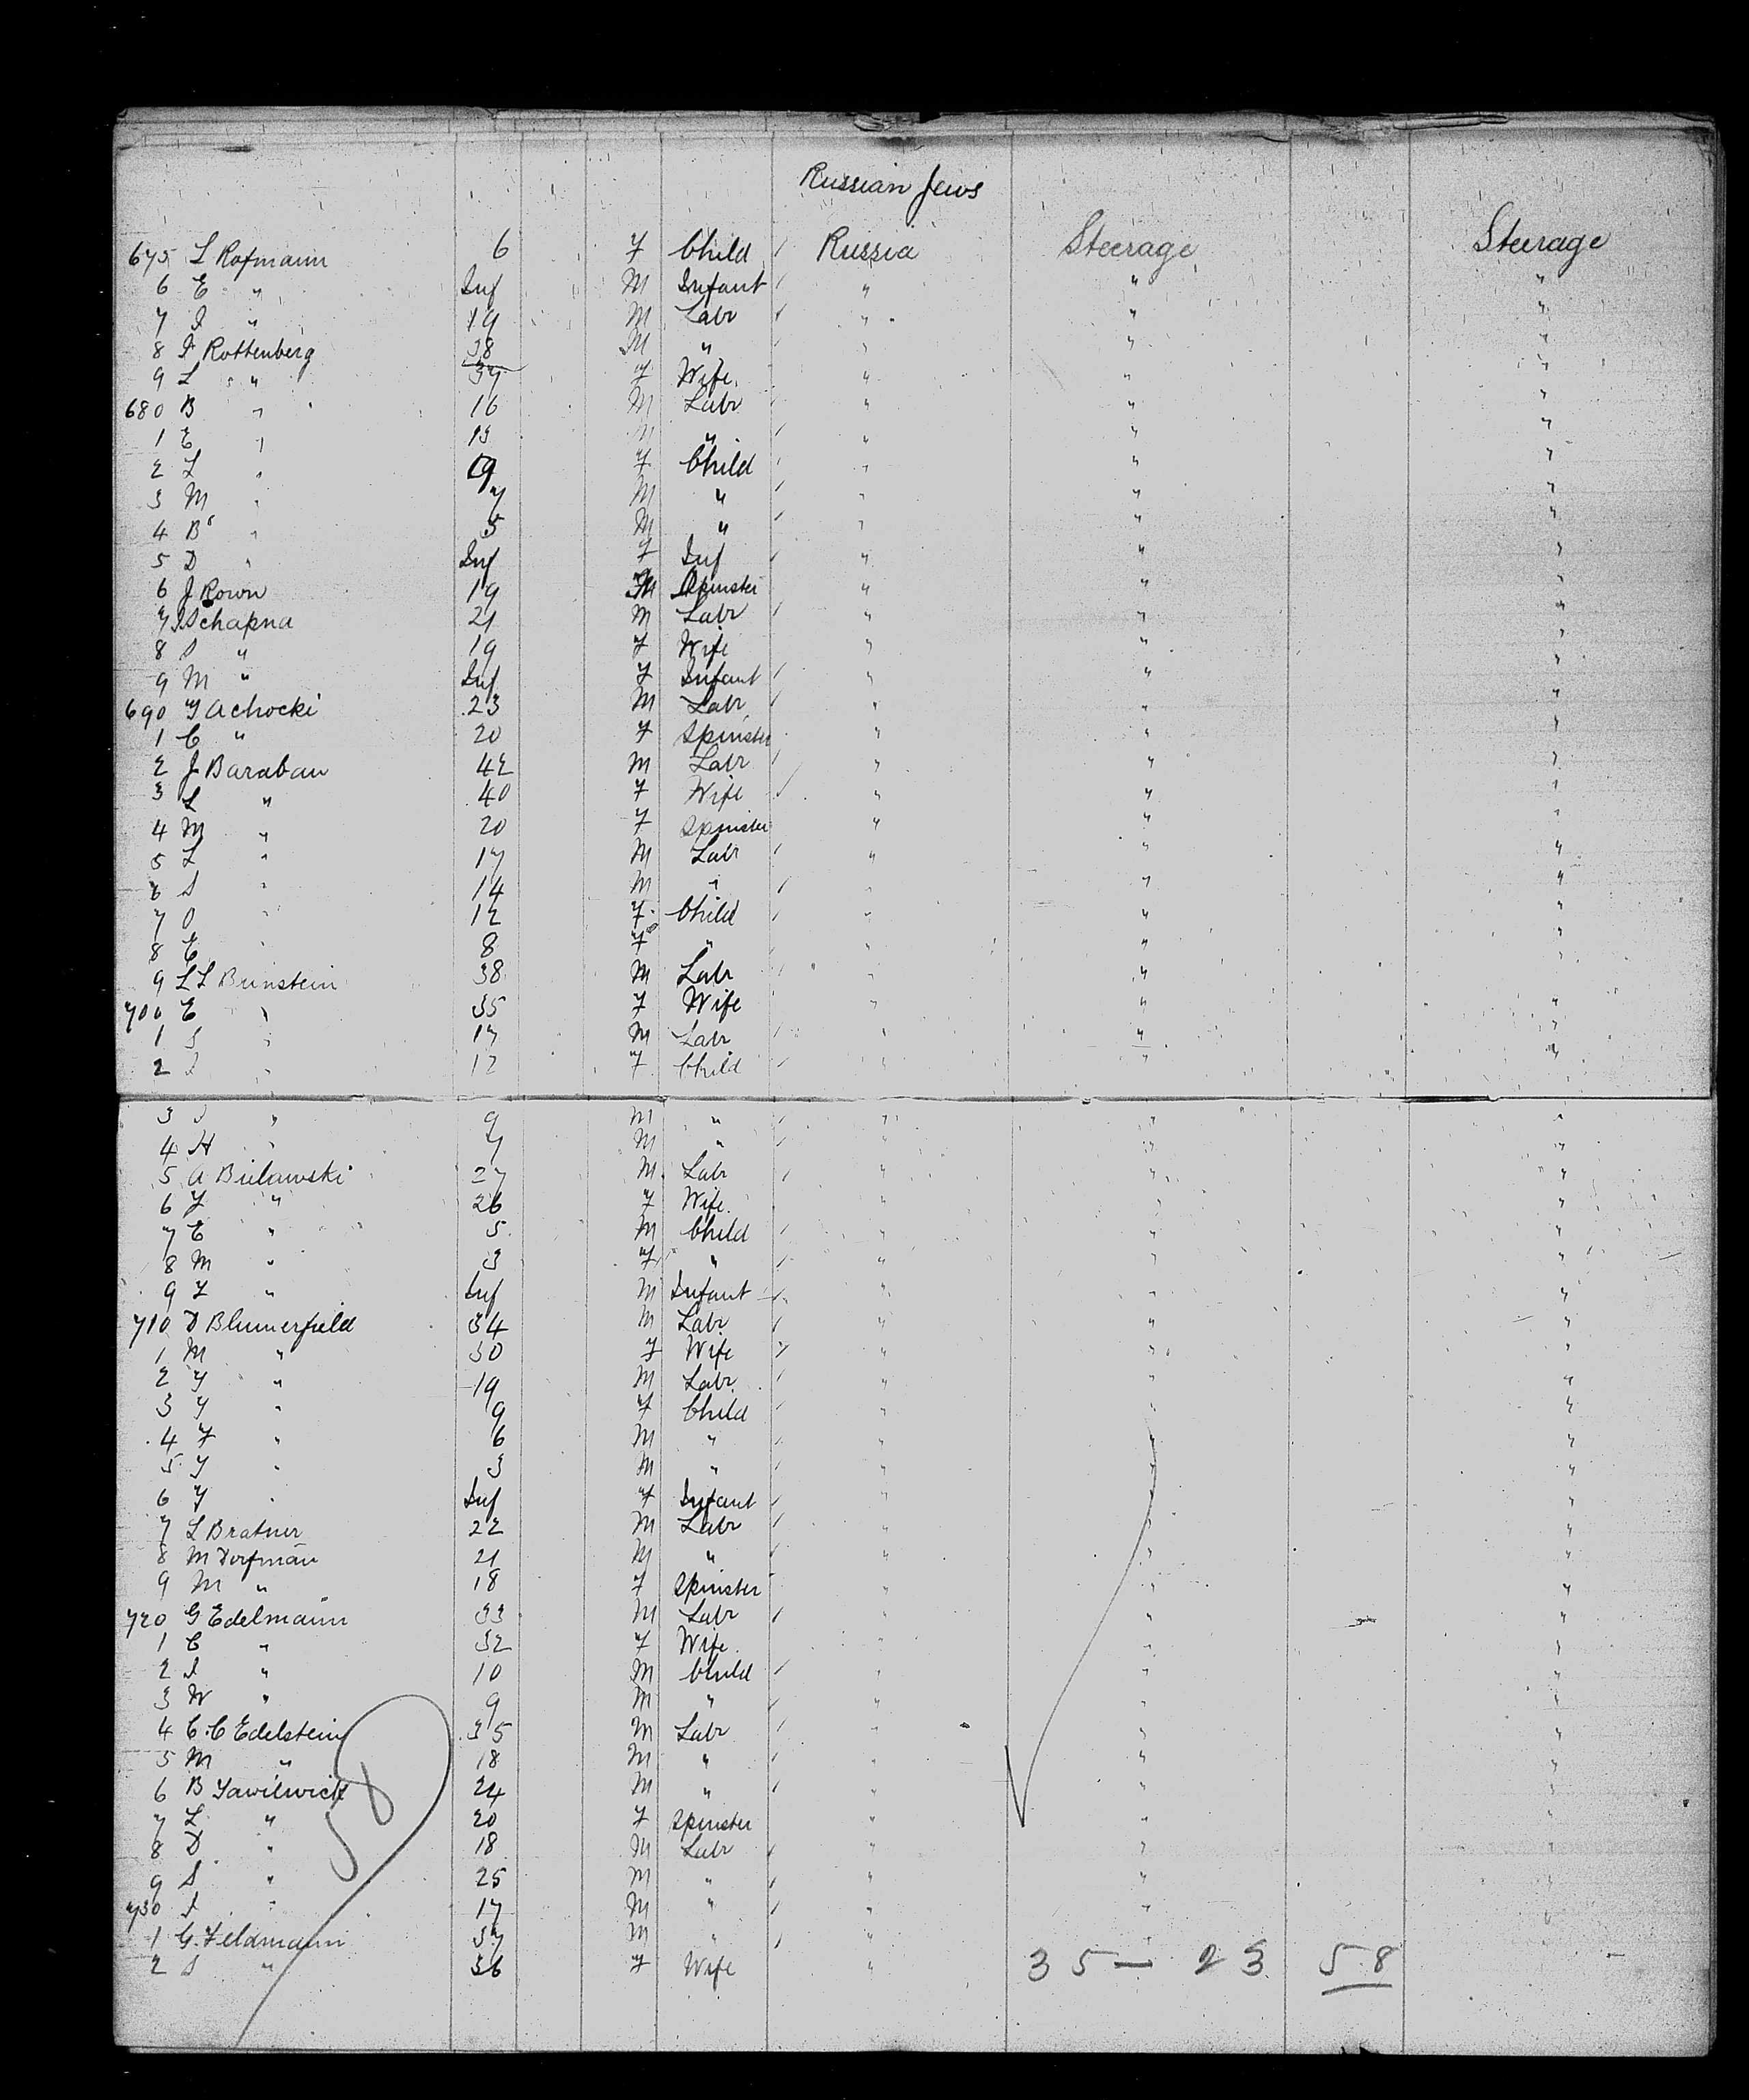 Russian Jews
675 L Rofmann 6 F Child Russia Steerage Steerage
6 E " Inf M Infant " " "
7 I " 19 M Labr " " "
8 I Rottenberg 38 M " " " "
9 L " 37 F Wife " " "
680 B " 16 M Labr " " "
1 E " 13 M " " " "
2 L " 9 F Child " " "
3 M " 7 M " " " "
4 B " 5 M " " " "
5 D " Inf F Inf " " "
6 J Rown 19 Spinster " " "
7 Schapna 21 M Labr " " "
8 S " 19 F Wife " " "
9 M " Inf F Infant " " "
690 Y Achocki 23 M Labr " " "
1 C " 20 F Spinster " " "
2 J Baraban 42 M Labr " " "
3 L " 40 F Wife " " "
4 M " 20 F Spinster " " "
5 L " 17 M Labr " " "
6 S " 14 M " " " "
7 O " 12 F Child " " "
8 E " 8 F " " " "
9 L L Brinstein 38 M Labr " " "
700 E " 35 F Wife " " "
1 S " 17 M Labr " " "
2 I " 12 F Child " " "
3 I " 9 M " " " "
4 H " 7 M " " " "
5 A Bielawski 27 M Labr " " "
6 Y " 26 F Wife " " "
7 E " 5 M Child " " "
8 M " 3 F " " " "
9 Z " Inf M Infant " " "
710 D Blumerfield 34 M Labr " " "
1 M " 30 F Wife " " "
2 Y " 19 M Labr " " "
3 Y " 9 F Child " " "
4 F " 6 M " " " "
5 Y " 3 M " " " "
6 Y " Inf F Infant " " "
7 L Bratner 22 M Labr " " "
8 M Dorfman 21 M " " " "
9 M " 18 F Spinster " " "
720 G Edelmann 33 M Labr " " "
1 C " 32 F Wife " " "
2 I " 10 M Child " " "
3 W " 9 M " " " "
4 C. C Edelstein 35 M Labr " " "
5 M " 18 M " " " "
6 B Yawilwick 24 M " " " "
7 L " 20 F Spinster " " "
8 D " 18 M Labr " " "
9 S " 25 M " " " "
730 I " 17 M " " " "
1 G. Feldmann 37 M " " "
2 S " 36 F Wife "
58
35 — 23 58